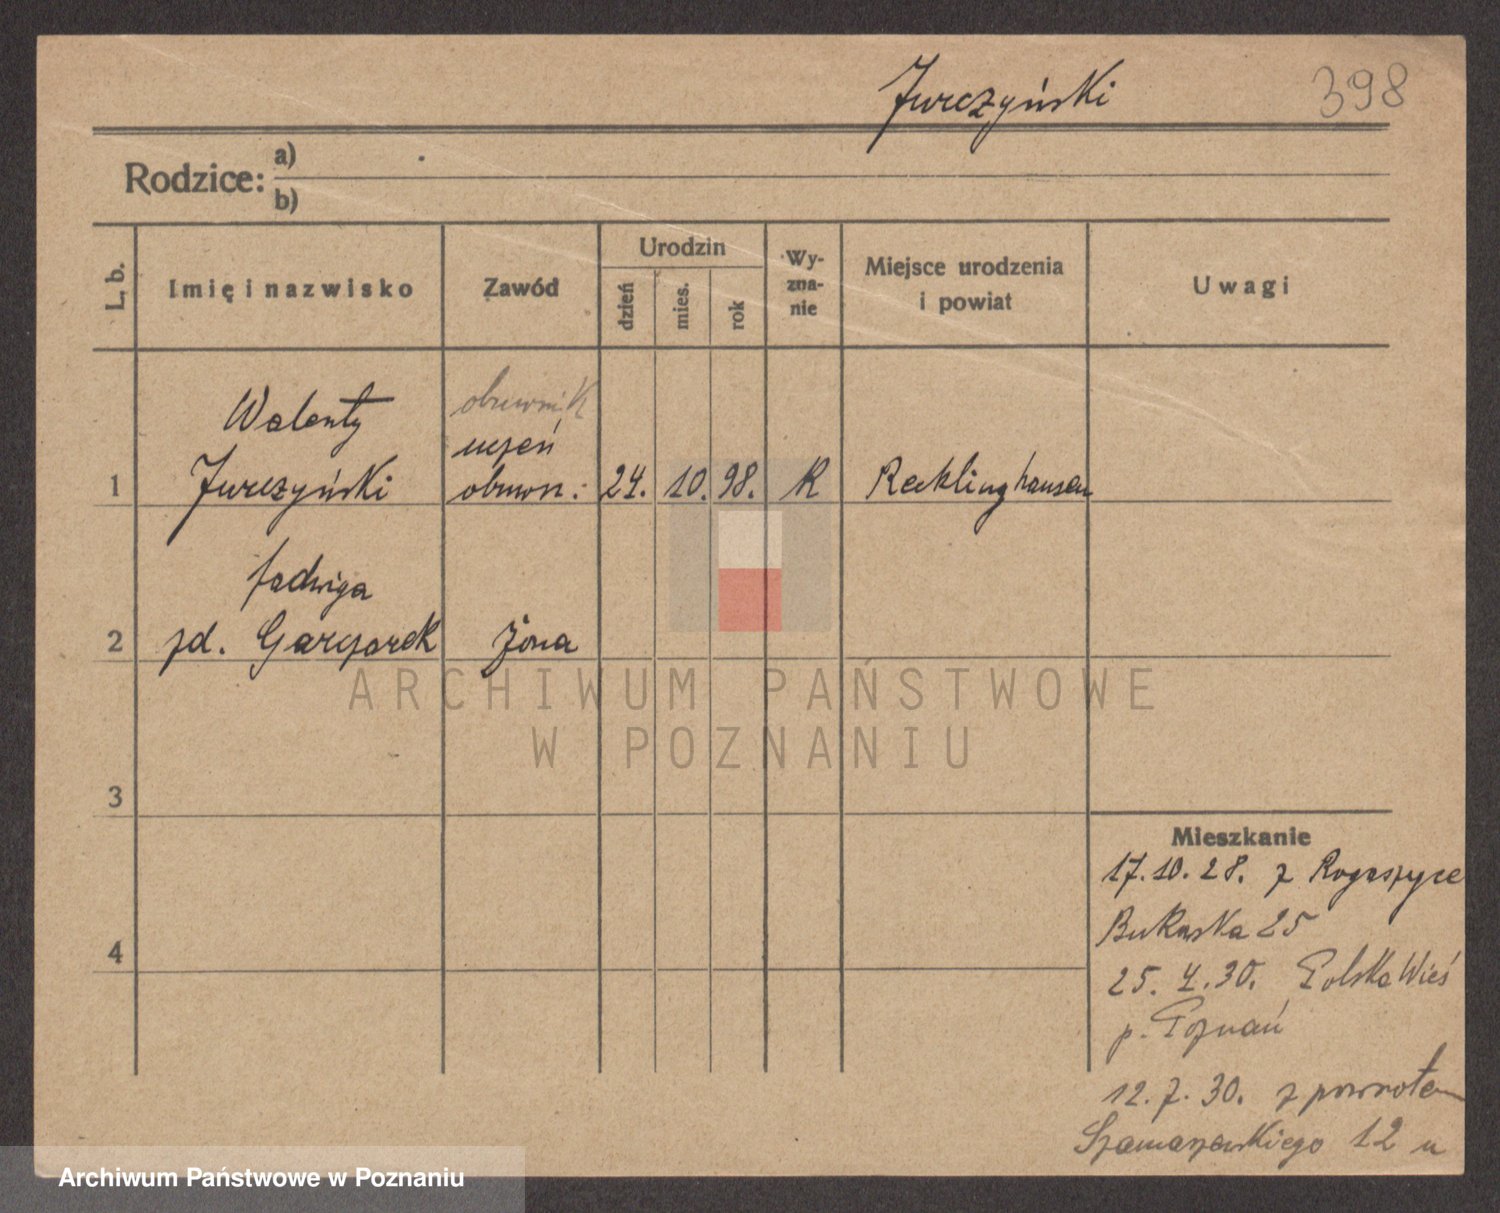 Jurczyński
398
Rodzice: a)
b)
L. b.
Imię i nazwisko
Zawód
Urodzin
dzień
mies.
rok
Wy-
zna-
nie
Miejsce urodzenia
i powiat
Uwagi
Walenty
obuwnik
uczeń
1 Jurczyński obuwn. 24. 10. 98. K Recklinghausen
Jadwiga
2 zd. Garczarek żona
ARCHIWUM PAŃSTWOWE
W POZNANIU
3
Mieszkanie
17.10.28. z Rogaszyce
Bukaska 25
4
25. 4. 30. Polska Wieś
p. Poznań
12. 7. 30. z powrotem
Szamarzewskiego 12 u
Archiwum Państwowe w Poznaniu